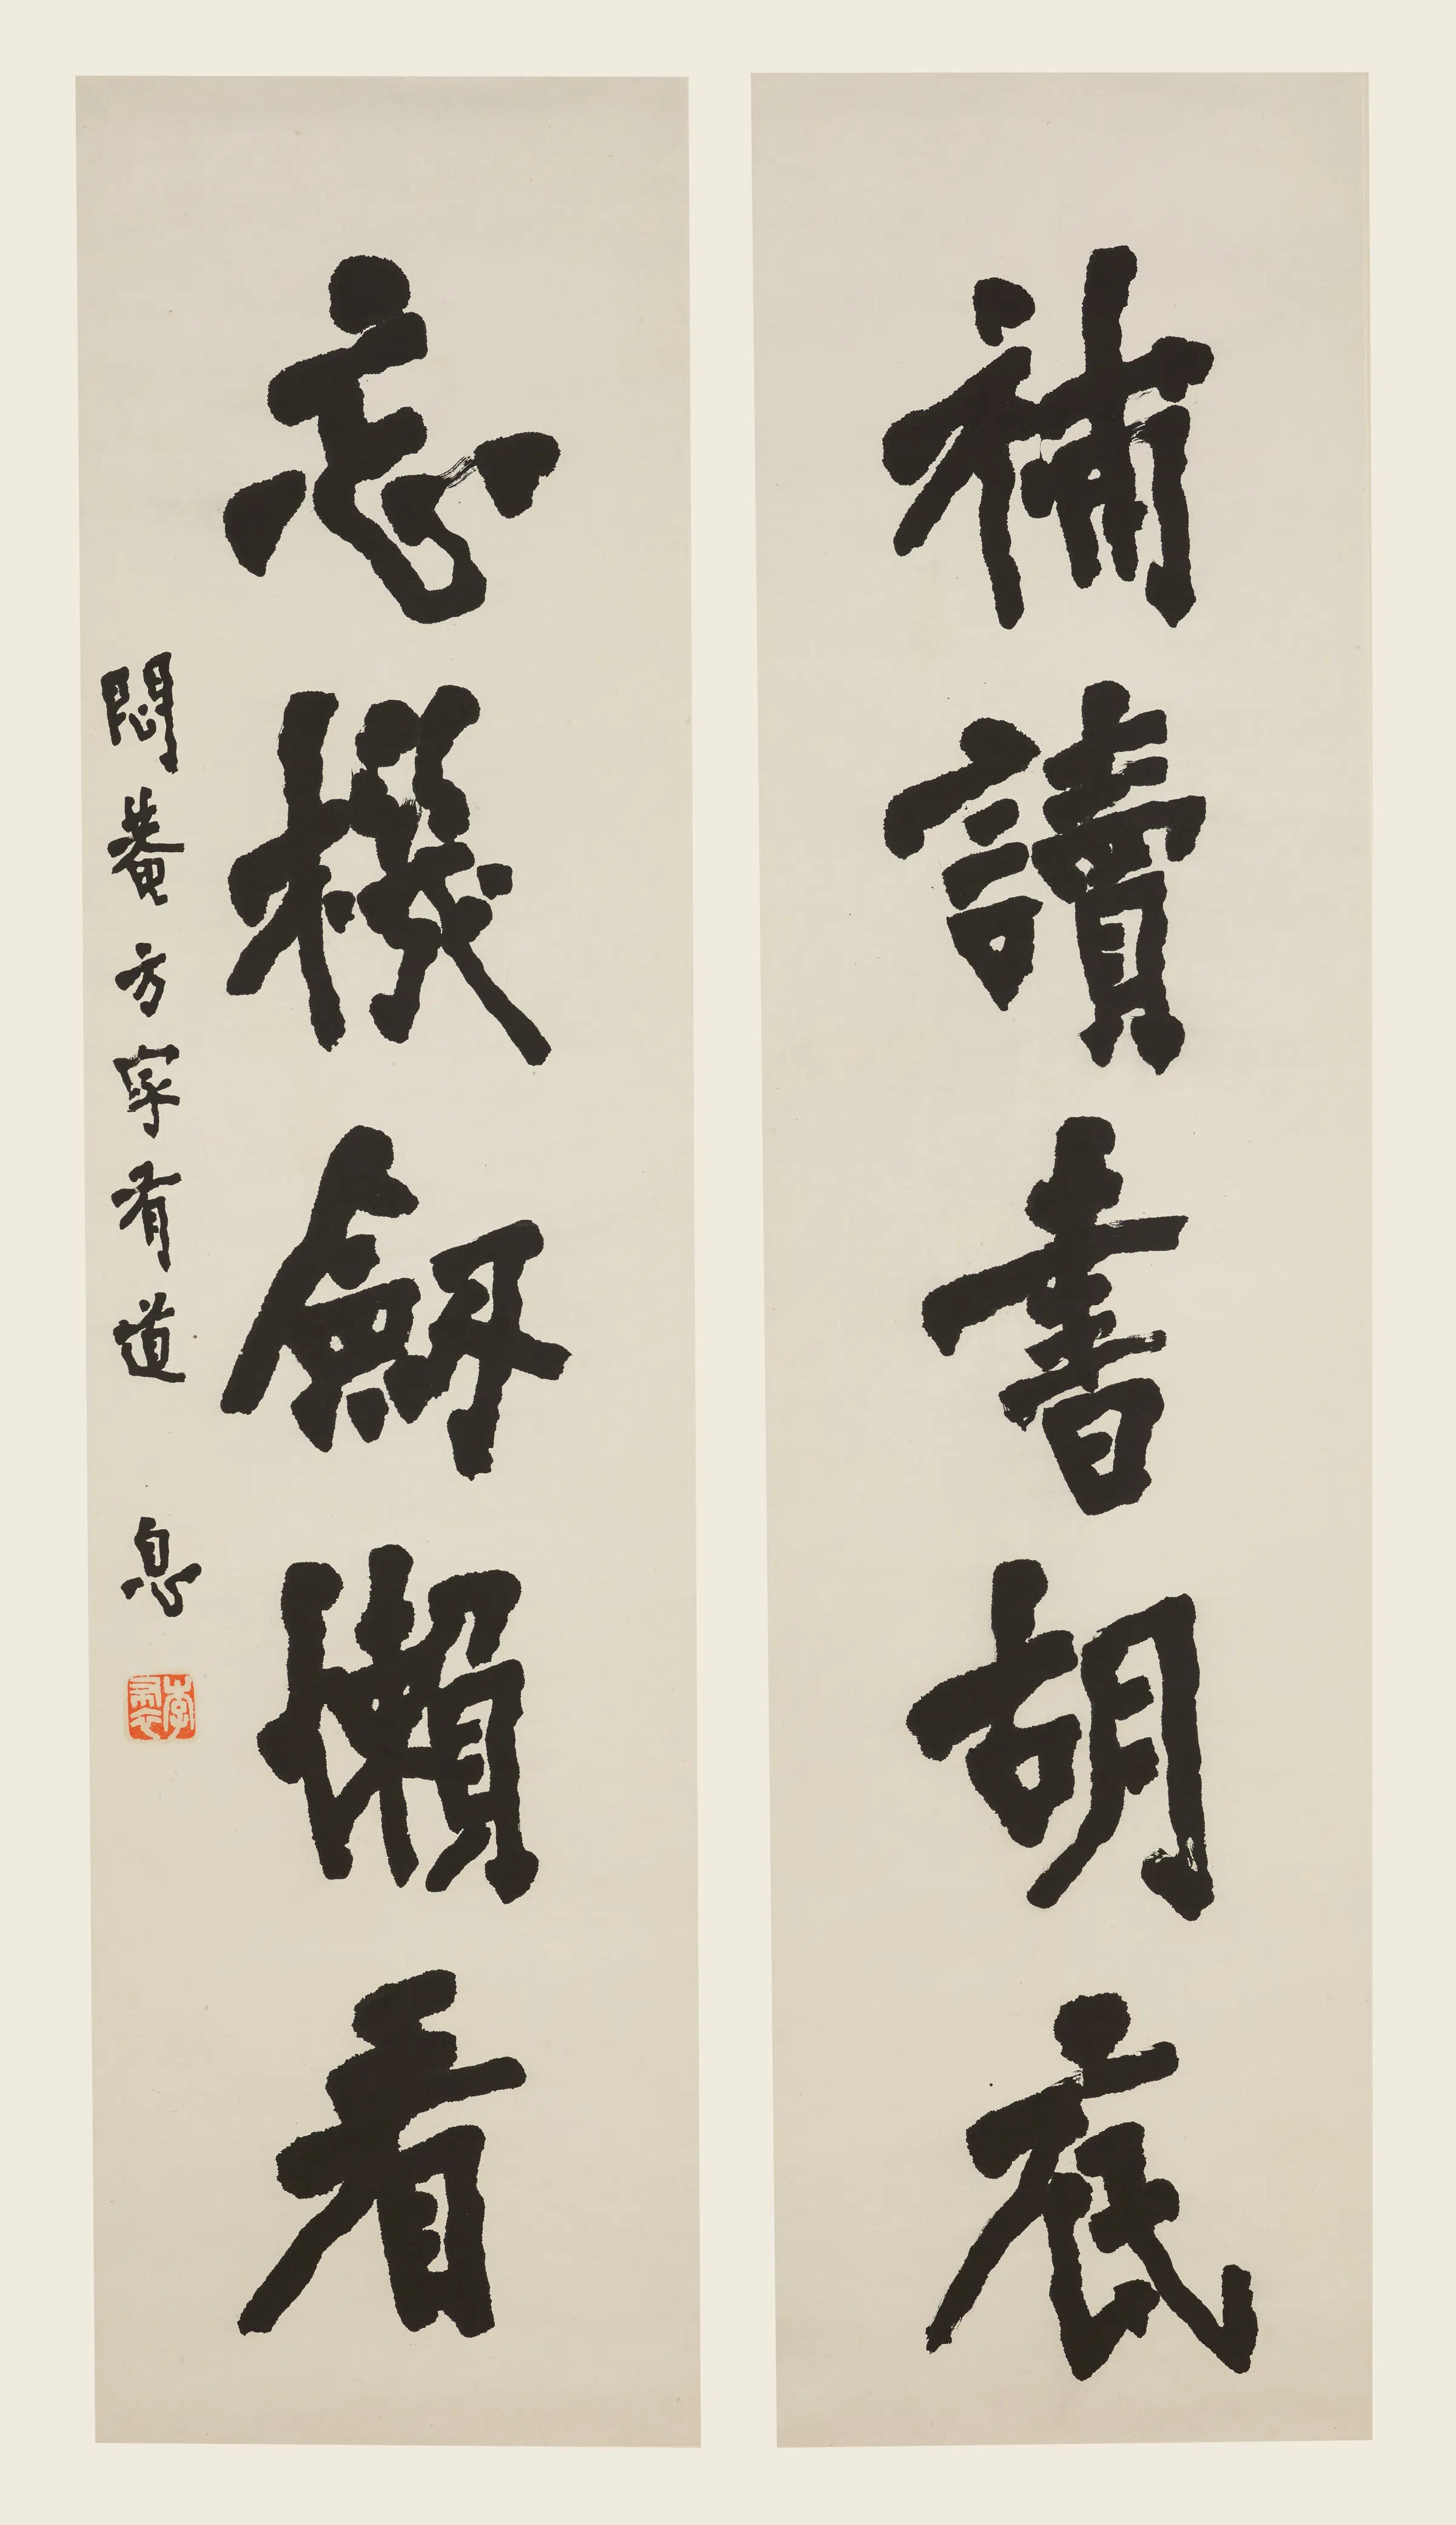 補讀書胡底
忘機劒懶看
悶菴方家有道
息